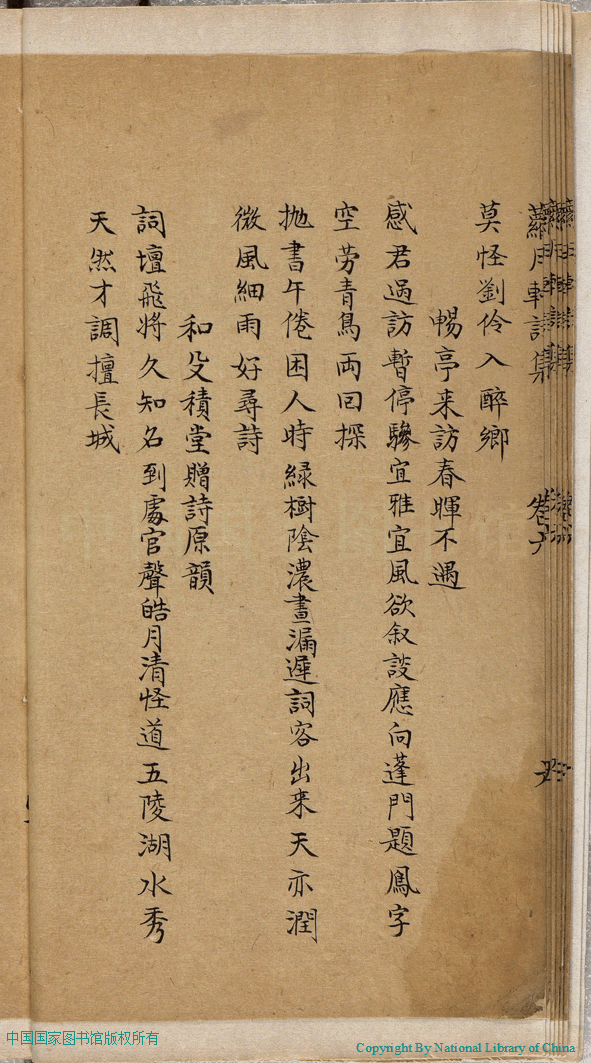 蘿月軒詩集 卷六
莫怪劉伶入醉鄉
暢亭来訪春暉不遇
感君過訪暫停驂宜雅宜風欲叙談應向蓬門題鳳字
空劳青鳥両回探
抛書午倦困人時緑樹陰濃晝漏遲詞客出来天亦潤
微風細雨好尋詩
和殳積堂贈詩原韻
詞壇飛將久知名到處官聲皓月清怪道五陵湖水秀
天然才調擅長城
中国国家图书馆版权所有
Copyright By National Library of China